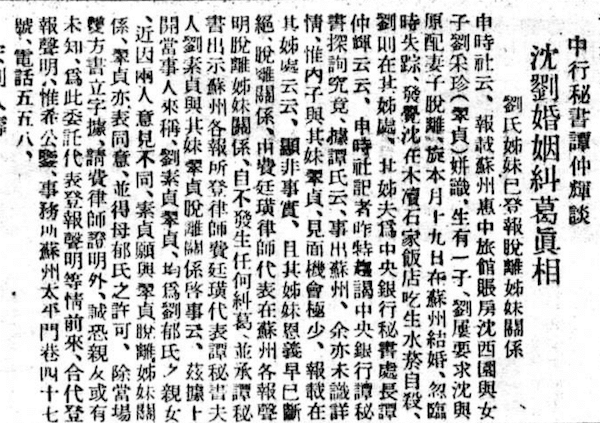 中行秘書譚仲輝談
沈劉婚姻糾葛眞相
劉氏姊妹已登報脫離姊妹關係
申時社云、報載蘇州惠中旅館賬房沈西園與女
子劉采珍(翠貞)姘識、生有一子、劉屢要求沈與
原配妻子脫離、旋本月十九日在蘇州結婚、忽臨
時失踪、發覺沈在木瀆石家飯店吃生水菸自殺、
劉則在其姊處、其姊夫爲中央銀行秘書處長譚
仲輝云云、申時社記者昨特趨謁中央銀行譚秘
書探詢究竟、據譚氏云、事出蘇州、余亦未識詳
情、惟內子與其妹翠貞、見面機會極少、報載在
其姊處云云、顯非事實、且其姊妹恩義早已斷
絕、脫離關係、由費廷璜律師代表在蘇州各報聲
明脫離姊妹關係、自不發生任何糾葛、並承譚秘
書出示蘇州各報所登律師費廷璜代表譚秘書夫
人劉素貞與其妹翠貞脫離關係啓事云、茲據上
開當事人來稱、劉素貞翠貞、均爲劉郁氏之親女
、近因兩人意見不同、素貞願與翠貞脫離姊妹關
係、翠貞亦表同意、並得母郁氏之許可、除當場
雙方書立字據、請費律師證明外、誠恐親友或有
未知、爲此委託代表登報聲明等情前來、合代登
報聲明、惟希公鑒、事務所蘇州太平門巷四十七
號、電話五五八、